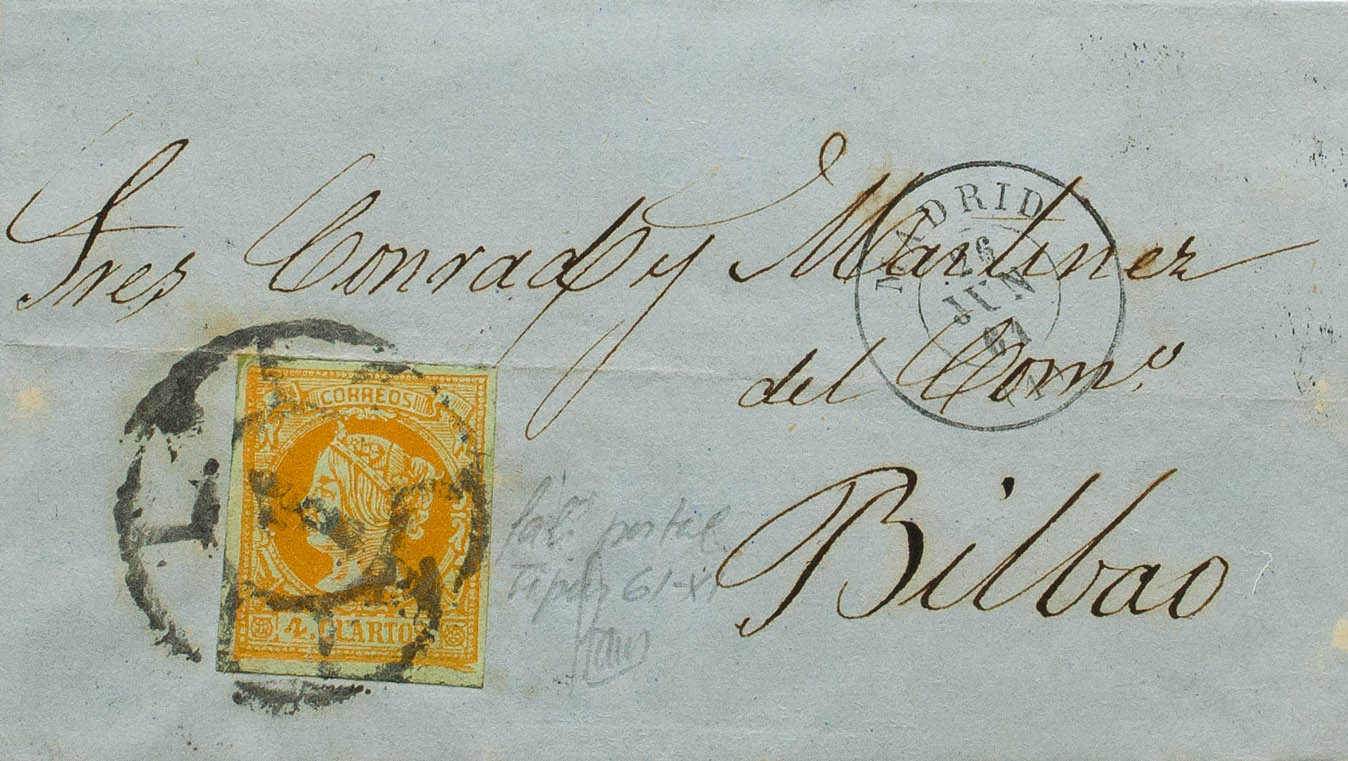 Sres Conrad y Martinez
del Com.º
Bilbao
MADRID
26
JUN
61
CORREOS
4 CUARTOS
postal
61-XI